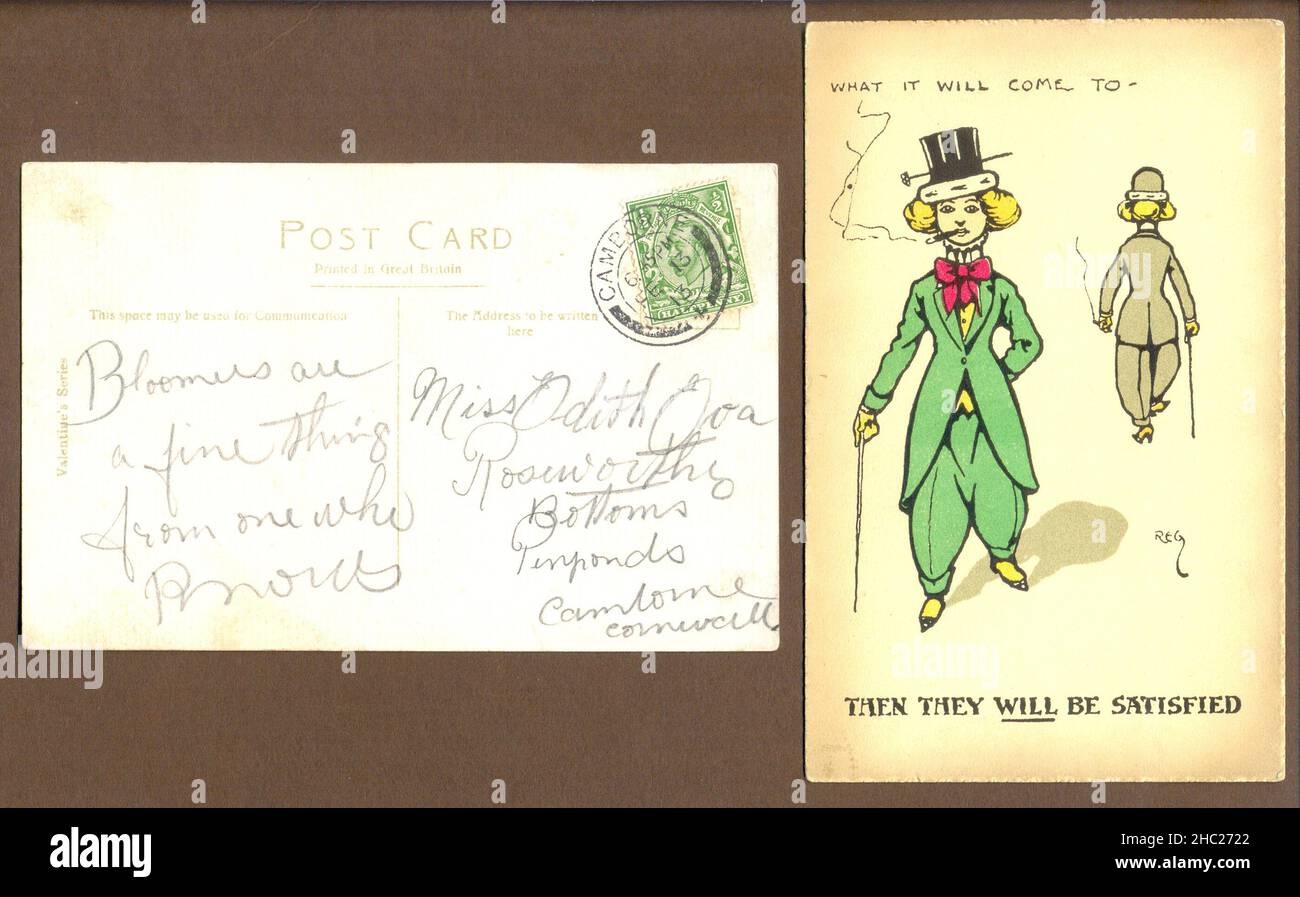 POST CARD
Printed in Great Britain
This space may be used for Communication
The Address to be written
here
Valentine's Series
CAMBORNE
13
HALFPENNY
Bloomers are
a fine thing
from one who
knows
Miss Edith
Roseworthy
Bottoms
Penponds
Camborne
cornwall
WHAT IT WILL COME TO-
REG
THEN THEY WILL BE SATISFIED
alamy
Image ID: 2HC2722
www.alamy.com